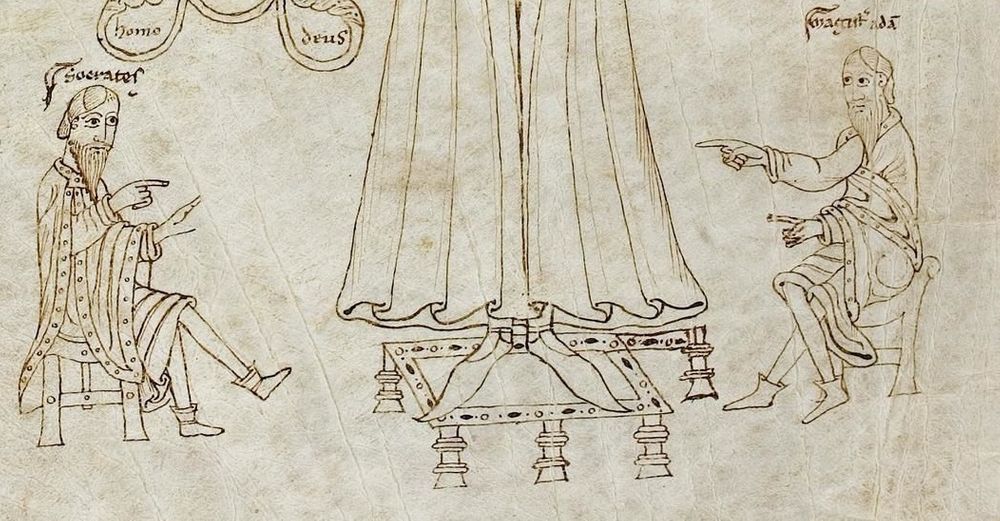 homo
deus
Socrates
Magistʳ adā